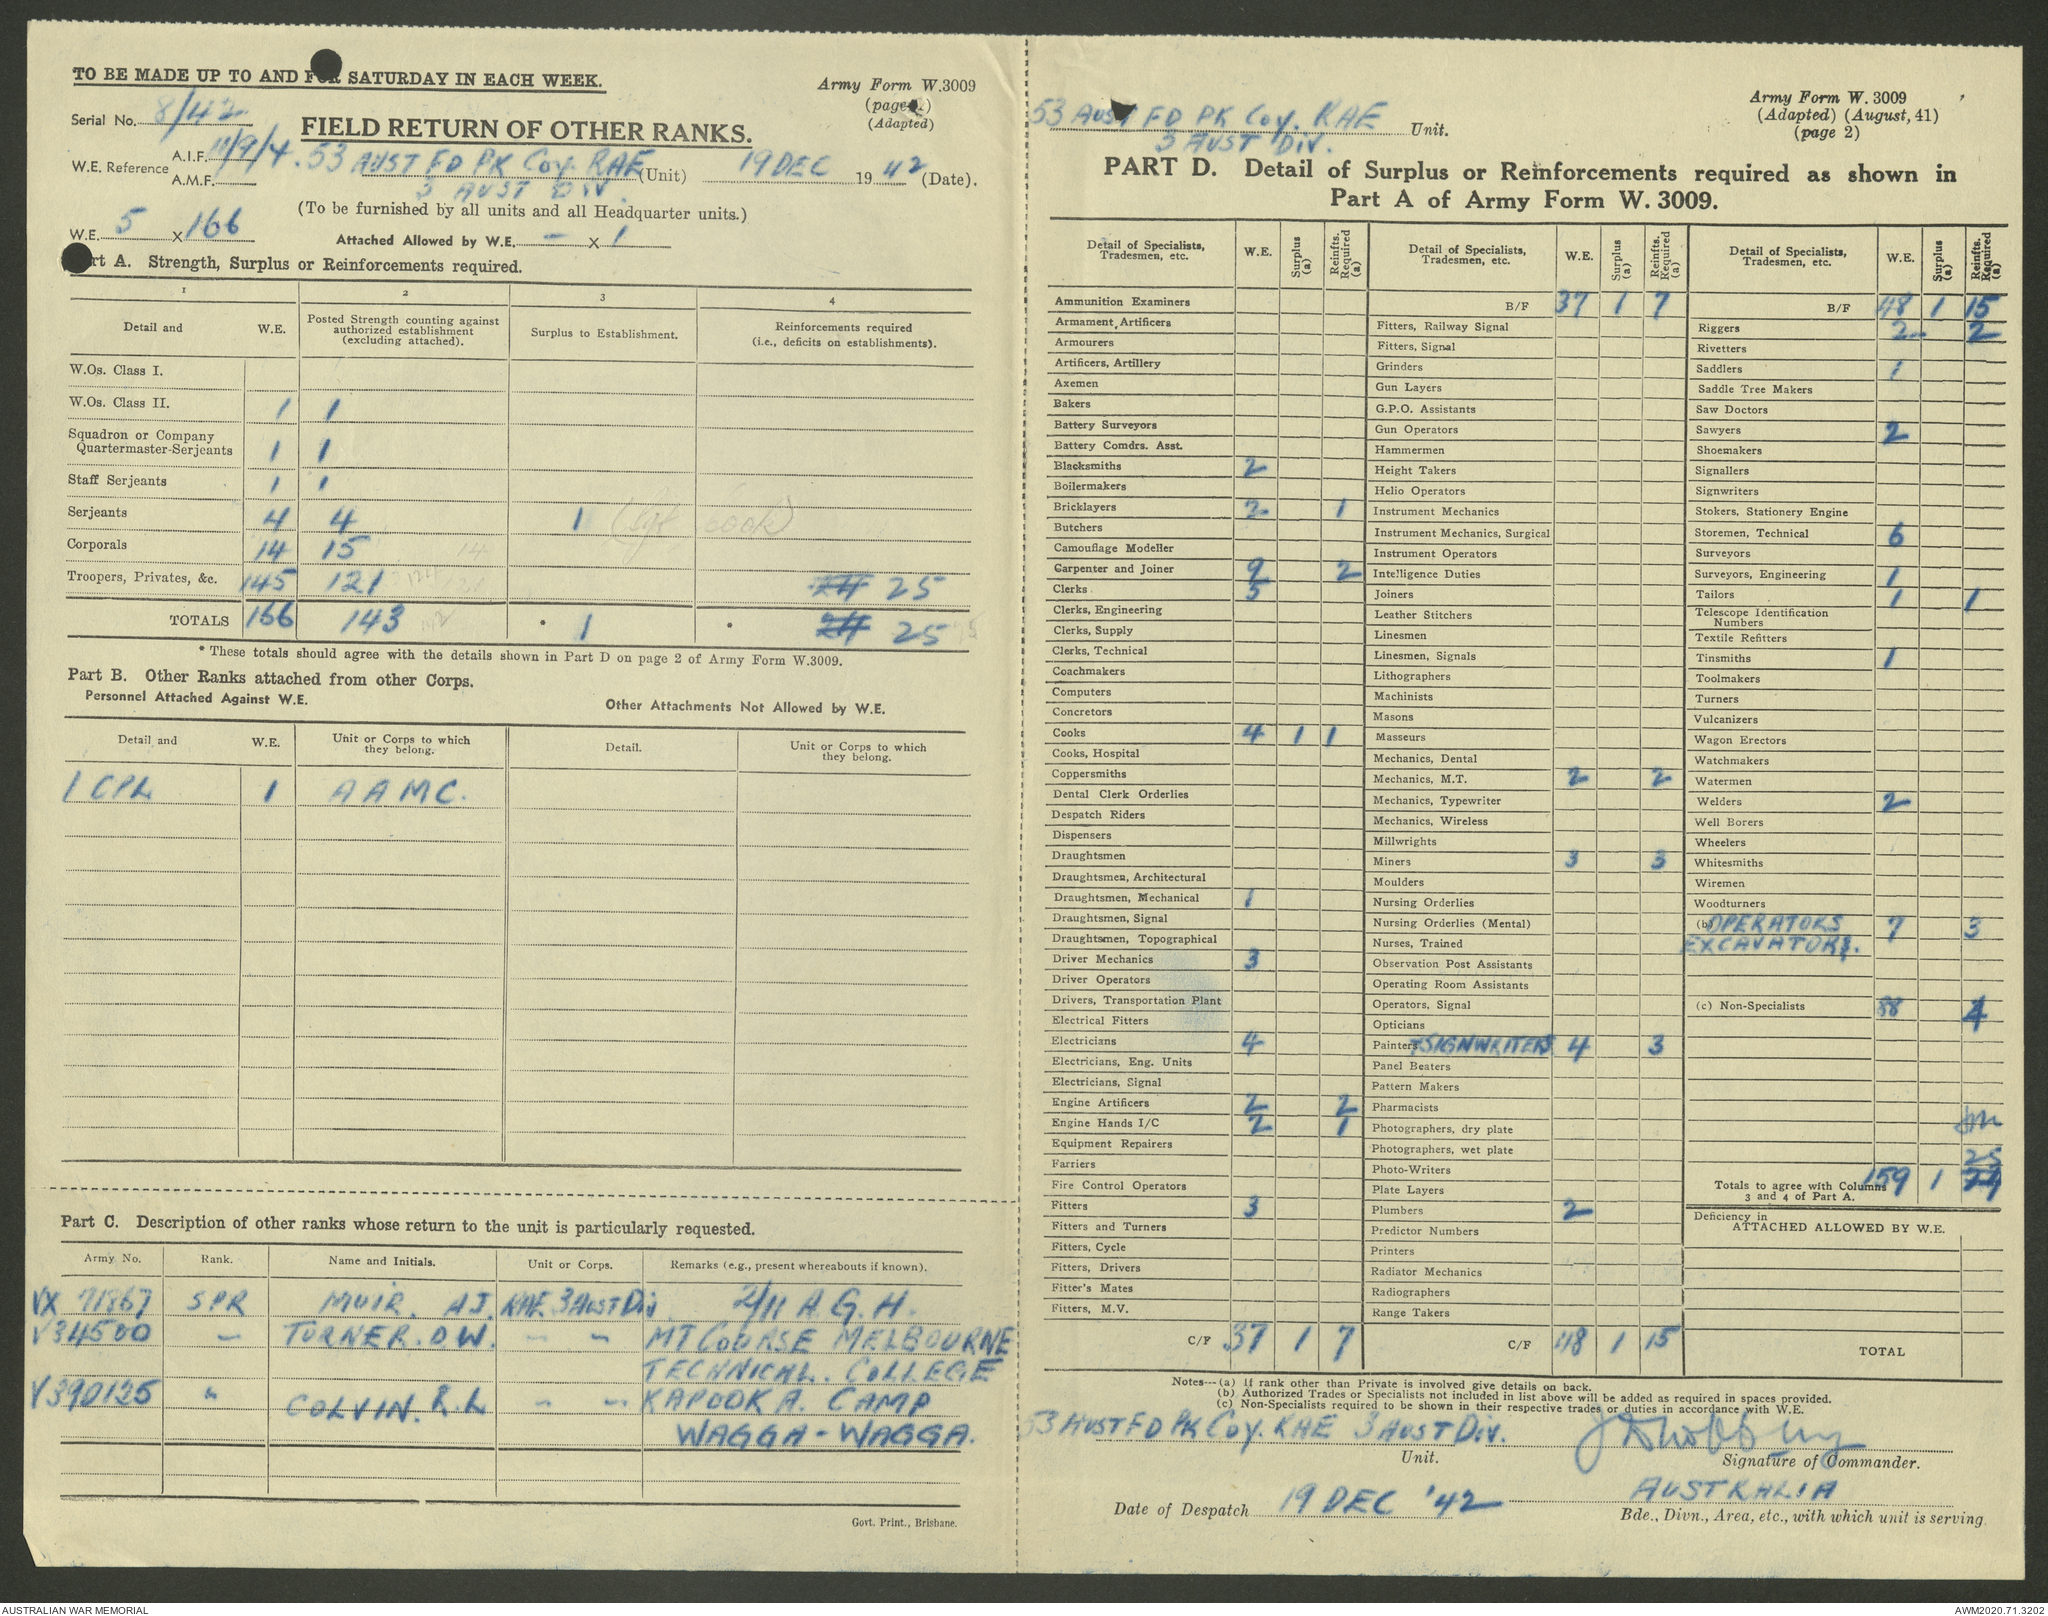 TO BE MADE UP TO AND FOR SATURDAY IN EACH WEEK.
Army Form W.3009
(page 1)
(Adapted)
Serial No. 8/42
FIELD RETURN OF OTHER RANKS.
W.E. Reference A.I.F. 11/9/4.
A.M.F.
53 AUST FD PK COY. RAE (Unit) 19 DEC 1942 (Date).
3 AUST DIV.
(To be furnished by all units and all Headquarter units.)
W.E. 5 X 166 Attached Allowed by W.E. – X 1
Part A. Strength, Surplus or Reinforcements required.
1 2 3 4
Detail and W.E. Posted Strength counting against authorized establishment (excluding attached). Surplus to Establishment. Reinforcements required (i.e., deficits on establishments).
W.Os. Class I.
W.Os. Class II. 1 1
Squadron or Company
Quartermaster-Serjeants 1 1
Staff Serjeants 1 1
Serjeants 4 4 1 (Sgt Cook)
Corporals 14 15 14
Troopers, Privates, &c. 145 121 24 25
TOTALS 166 143 142 * 1 * 24 25
* These totals should agree with the details shown in Part D on page 2 of Army Form W.3009.
Part B. Other Ranks attached from other Corps.
Personnel Attached Against W.E. Other Attachments Not Allowed by W.E.
Detail and W.E. Unit or Corps to which they belong. Detail. Unit or Corps to which they belong.
1 CPL 1 AAMC.
Part C. Description of other ranks whose return to the unit is particularly requested.
Army No. Rank. Name and Initials. Unit or Corps. Remarks (e.g., present whereabouts if known).
VX 71867 SPR MUIR. A J. RAE 3 AUST DIV. 2/11 A.G.H.
V34500 – TURNER. D W. – – MT COURSE MELBOURNE
TECHNICAL. COLLEGE
V390125 " COLVIN. R. L – – KAPOOKA. CAMP
WAGGA - WAGGA.
Govt. Print., Brisbane.
53 AUST FD PK COY. RAE Unit.
3 AUST DIV.
Army Form W. 3009
(Adapted) (August, 41)
(page 2)
PART D. Detail of Surplus or Reinforcements required as shown in
Part A of Army Form W. 3009.
Detail of Specialists, Tradesmen, etc. W.E. Surplus (a) Reinfts. Required (a)
Ammunition Examiners
Armament Artificers
Armourers
Artificers, Artillery
Axemen
Bakers
Battery Surveyors
Battery Comdrs. Asst.
Blacksmiths 2
Boilermakers
Bricklayers 2 1
Butchers
Camouflage Modeller
Carpenter and Joiner 9 2
Clerks 5
Clerks, Engineering
Clerks, Supply
Clerks, Technical
Coachmakers
Computers
Concretors
Cooks 4 1 1
Cooks, Hospital
Coppersmiths
Dental Clerk Orderlies
Despatch Riders
Dispensers
Draughtsmen
Draughtsmen, Architectural
Draughtsmen, Mechanical 1
Draughtsmen, Signal
Draughtsmen, Topographical
Driver Mechanics 3
Driver Operators
Drivers, Transportation Plant
Electrical Fitters
Electricians 4
Electricians, Eng. Units
Electricians, Signal
Engine Artificers 2 2
Engine Hands I/C 2 1
Equipment Repairers
Farriers
Fire Control Operators
Fitters 3
Fitters and Turners
Fitters, Cycle
Fitters, Drivers
Fitter's Mates
Fitters, M.V.
C/F 37 1 7
Detail of Specialists, Tradesmen, etc. W.E. Surplus (a) Reinfts. Required (a)
B/F 37 1 7
Fitters, Railway Signal
Fitters, Signal
Grinders
Gun Layers
G.P.O. Assistants
Gun Operators
Hammermen
Height Takers
Helio Operators
Instrument Mechanics
Instrument Mechanics, Surgical
Instrument Operators
Intelligence Duties
Joiners
Leather Stitchers
Linesmen
Linesmen, Signals
Lithographers
Machinists
Masons
Masseurs
Mechanics, Dental
Mechanics, M.T. 2 2
Mechanics, Typewriter
Mechanics, Wireless
Millwrights
Miners 3 3
Moulders
Nursing Orderlies
Nursing Orderlies (Mental)
Nurses, Trained
Observation Post Assistants
Operating Room Assistants
Operators, Signal
Opticians
Painters + SIGNWRITERS 4 3
Panel Beaters
Pattern Makers
Pharmacists
Photographers, dry plate
Photographers, wet plate
Photo-Writers
Plate Layers
Plumbers 2
Predictor Numbers
Printers
Radiator Mechanics
Radiographers
Range Takers
C/F 48 1 15
Detail of Specialists, Tradesmen, etc. W.E. Surplus (a) Reinfts. Required (a)
B/F 48 1 15
Riggers 2 2
Rivetters
Saddlers 1
Saddle Tree Makers
Saw Doctors
Sawyers 2
Shoemakers
Signallers
Signwriters
Stokers, Stationery Engine
Storemen, Technical 6
Surveyors
Surveyors, Engineering 1
Tailors 1 1
Telescope Identification
Numbers
Textile Refitters
Tinsmiths 1
Toolmakers
Turners
Vulcanizers
Wagon Erectors
Watchmakers
Watermen
Welders 2
Well Borers
Wheelers
Whitesmiths
Wiremen
Woodturners
(b) OPERATORS 7 3
EXCAVATORS.
(c) Non-Specialists 88 4
25
Totals to agree with Columns 159 1 24
3 and 4 of Part A.
Deficiency in
ATTACHED ALLOWED BY W.E.
TOTAL
Notes—(a) If rank other than Private is involved give details on back.
(b) Authorized Trades or Specialists not included in list above will be added as required in spaces provided.
(c) Non-Specialists required to be shown in their respective trades or duties in accordance with W.E.
53 AUST FD PK COY. RAE 3 AUST DIV.
Unit. Signature of Commander.
Date of Despatch 19 DEC '42 AUSTRALIA
Bde., Divn., Area, etc., with which unit is serving
AUSTRALIAN WAR MEMORIAL
AWM2020.71.3202